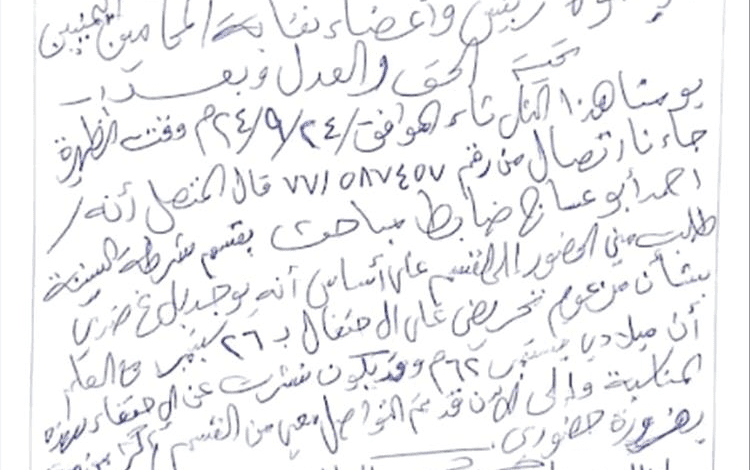 رئيس وأعضاء نقابة المحامين اليمنيين
تحية الحق والعدل وبعد
يومنا هذا الثلاثاء الموافق ٢٤/٩/٢٤م وقت الظهيرة
جاءنا اتصال من رقم ٧٧١٥٨٧٤٥٧ قال المتصل أنه /
احمد أبو عساج ضابط مباحث بقسم شرطة السنينة
طلب مني الحضور الى القسم على أساس أنه يوجد بلاغ ضدي
بشأن مزعوم تحريضي على الاحتفال بـ ٢٦ سبتمبر مع العلم
أن ميلادي سبتمبر ٦٢م وقد يكون نشرت عن الاحتفاء بهذه
المناسبة وإلى الآن قد تم التواصل معي من القسم أكثر من
بضرورة حضوري